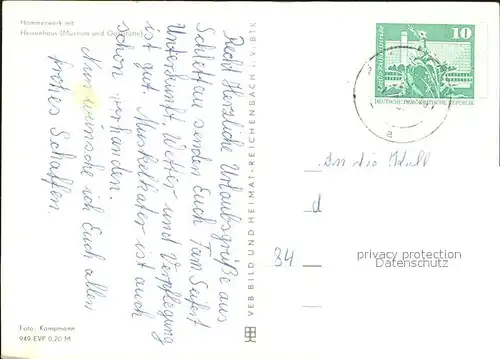 Hammerwerk mit
Herrenhaus (Museum und Gaststätte)
Recht Herzliche Urlaubsgrüße aus
Schlettau senden Euch Fam. Seifert
Unterkunft, Wetter und Verpflegung
ist gut. Muskelkater ist auch
schon vorhanden.
Nun wünsche ich Euch allen
frohes Schaffen.
Foto: Kampmann
949 EVP 0,20 M
VEB BILD UND HEIMAT · REICHENBACH i. V. BTK
10
DEUTSCHE DEMOKRATISCHE REPUBLIK
An die Koll
d
84
privacy protection
Datenschutz